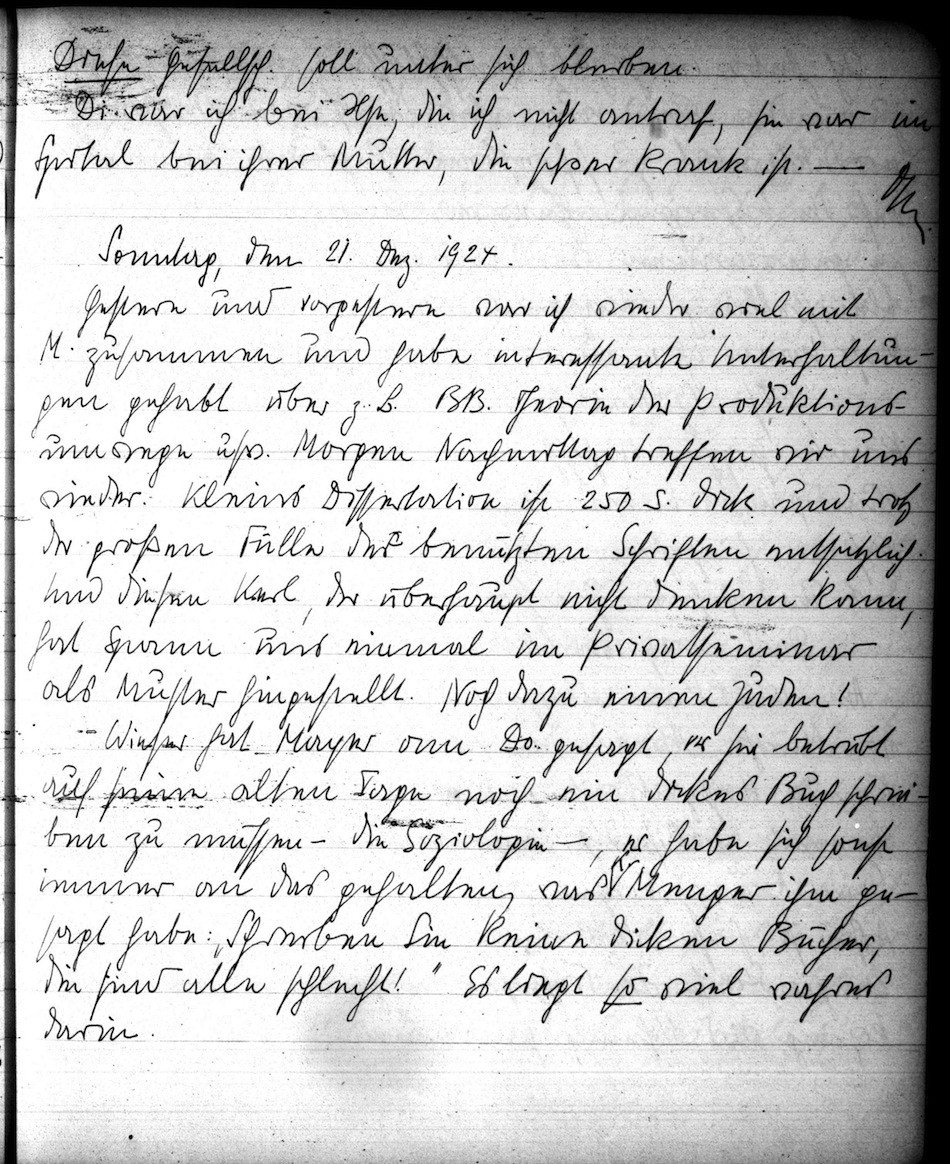 Diese Gesellsch. soll unter sich bleiben.
Di. war ich bei Hse, die ich nicht antraf, sie war im
Spital bei ihrer Mutter, die schwer krank ist. —
OM
Sonntag, den 21. Dez. 1924.
Gestern und vorgestern war ich wieder viel mit
M. zusammen und habe interessante Unterhaltun-
gen gehabt über z. B. BB. Theorie der Produktions-
umwege usw. Morgen Nachmittag treffen wir uns
wieder. Kleins Dissertation ist 250 S. dick und trotz
der großen Fülle der benützten Schriften entsetzlich.
Und diesen Karl, der überhaupt nicht denken kann,
hat Spann uns einmal im Privatseminar
als Muster hingestellt. Noch dazu einen Juden!
Wieser hat Mayer am Do. gesagt, er sei betrübt
auf seine alten Tage noch ein dickes Buch schrei-
ben zu müssen – die Soziologie –, er habe sich sonst
immer an das gehalten, was Menger ihm ge-
sagt habe: „Schreiben Sie keine dicken Bücher,
die sind alle schlecht!" Es liegt so viel wahres
darin.